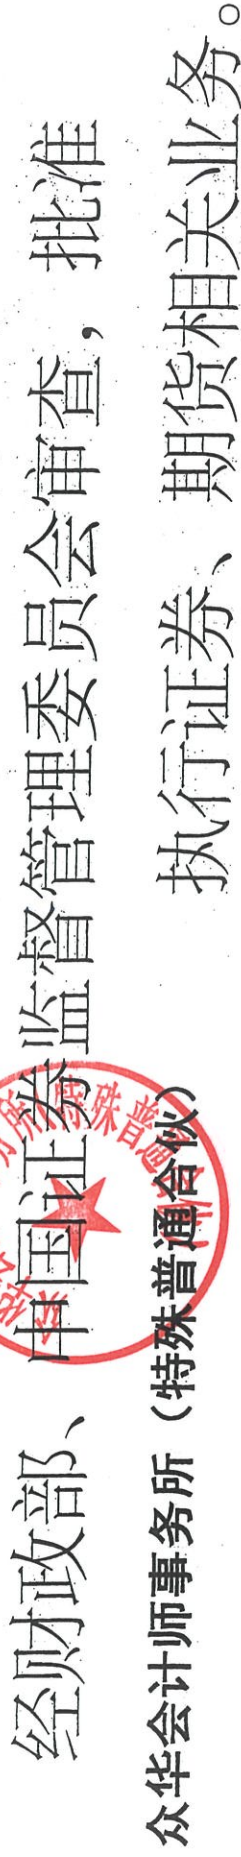 经财政部、中国证券监督管理委员会审查，批准
众华会计师事务所（特殊普通合伙）执行证券、期货相关业务。